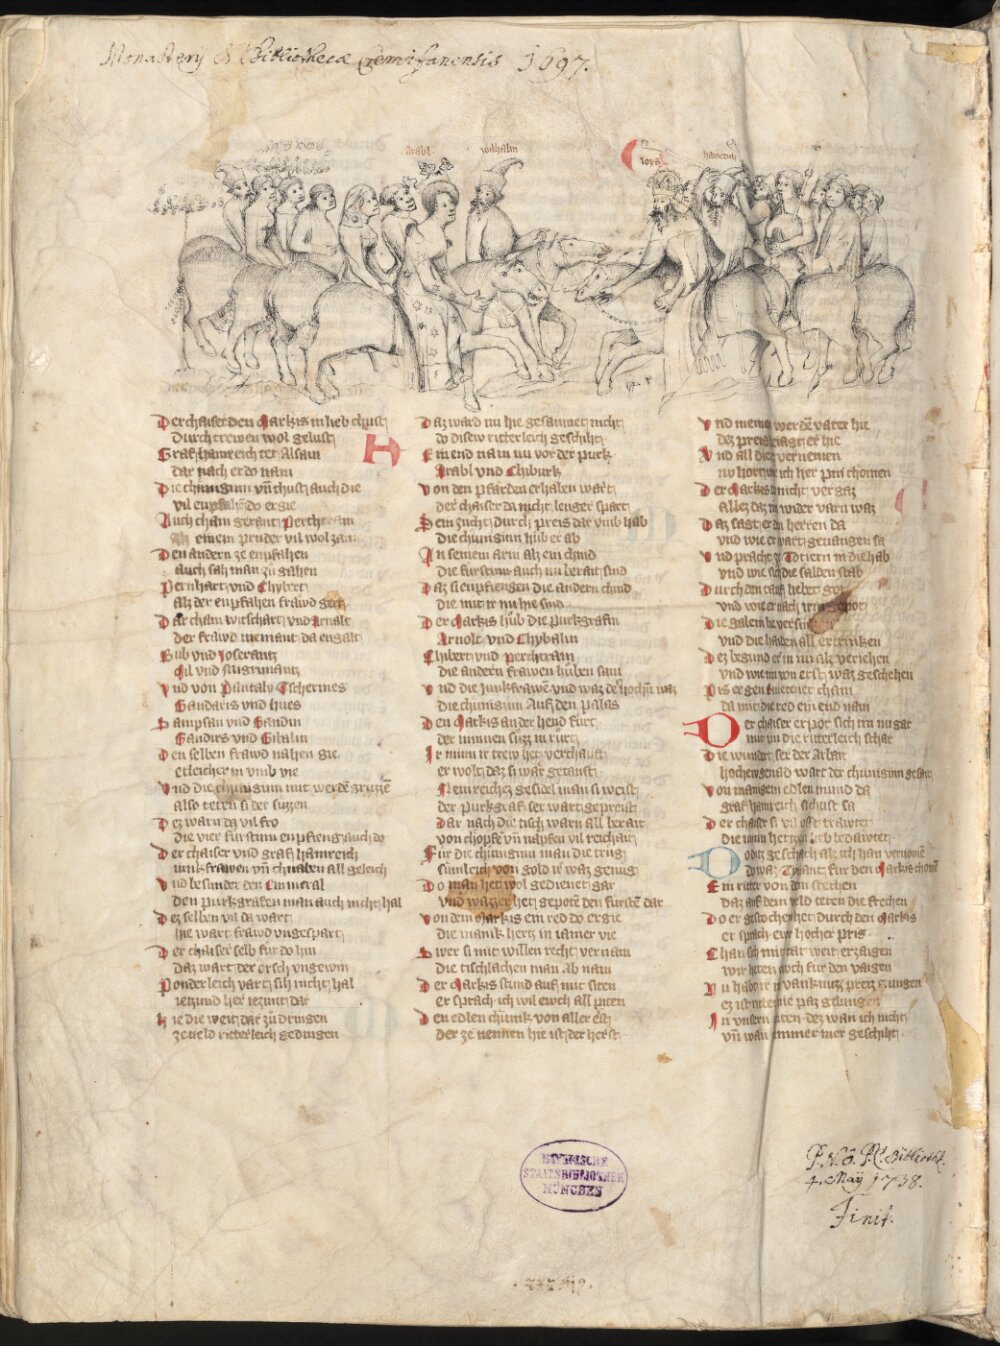 Monasterij & Bibliothecæ Cremifanensis 1697.
arabl
wilhalm
loys
hainreich
Der chaiser den Markis in lieb chust
Durch trewen wol gelust
Graf hainreich
dar nach er do nam
Die chunigin vn̄ chust auch die
vil do er gie
Auch cham gerant Pertheram
einem pruder vil wol zam
Den andern ze enpfahen
auch sah man zu gahen
Pernhart vnd Chybert
alz der enpfahen frawd gert
Dar cham witschart vnd Arnalt
der frawd niemant da engalt
Hub vnd Joserantz
Gil vnd
Vnd von Pantaly Tschermes
Gaudaris vnd hues
Sampsan vnd Gandin
Gandirs vnd Gibalin
Den selben frawd nahen gie
etleicher in vmb vie
Vnd die chunigin mit werdē gruzzē
also teten si der suzzen
Dez warn da vil fro
die vier furstinn enpfieng auch do
Der chaiser vnd graf hainreich
iunkfrawen vn̄ chnaben all geleich
Vnd besunder den Emmeral
den purkgrafen man auch nicht hal
Dez selben vil da wart
hie wart frawd vngespart
Der chaiser selb fur do hin
daz wart der orsch vngewin
Ponderleich vart sih nicht hal
ietzund her iezunt dar
Hie die weit dar zu dringen
ze veld ritterleich gedingen
H
Daz ward nu hie gesaumet nicht
do disew ritterleich geschiht
Ein end nam nu vor der purk
Arabl vnd Chiburk
Von den pfarden erhaben wart
der chaiser da nicht lenger spart
Sein zucht durch preis dar vmb hab
die chunginn hub er ab
In seinem arm alz ein chind
die furstinn auch nu berait sind
Daz si enpfiengen die andern chind
die mit ir nu hie sind
Der Markis hub die purkgrafin
Arnolt vnd Chybalin
Chibert vnd Perchtram
die andern frawen huben sam
Vnd die junkfrawē vnd waz de hochst waz
die chunginn Auf den palas
Den Markis an der hend furt
der minnen suzz in rurt
Ir mum ir trew het verchauft
er wolt daz si wär getauft
Nein reichez gesidel man si weist
der purkgraf ser wart gepreist
Dar nach die tisch warn all berait
von chopfe vn̄ napfen vil reichait
Für die chunginn man die trug
sümleich von gold ir waz genug
Do man het wol gedienet gar
vnd wazzer het gepotē den furstē dar
Von dem Markis ein red do ergie
die manik hertz in iamer vie
Swer si mit willen recht vernam
die tischlachen man ab nam
Der Markis stund auf mit siten
er sprach ich wil ewch all piten
Den edlen chunik von aller erst
der ze nennen hie ist der herst
Vnd meinen werdē vater hie
dez preis iagt er hie
Vnd all die ez vernemen
nu hort wie ich her pin chomen
Der Markis nicht vergaz
allez daz im wider varn waz
Daz sagt er den herren da
vnd wie er wart geuangen sa
Vnd pracht ze Todiern in die hab
vnd wie si die salden stab
Durch den tauf liebet got
vnd wie er nach irm gepot
Die galein
vnd die haiden all ertrenken
Dez begund er in nu alz veriehen
vnd wie im von erst waz geschehen
Pis er gen cham
da mit die red ein end nam
Der chaiser erpot sich im nu gar
mit im die ritterleich schar
Die wundert ser der Arbait
hochew genad wart der chunginn gesait
Von manigem edlen mund da
graf hainreich si chust sa
Der chaiser si vil oft trawter
die im in hertzen lieb bedawter
Do ditz geschach alz ich han vernomē
do waz Tyrant fur den Markis chomē
Ein ritter von dem stechen
daz auf dem veld teten die frechen
Do er gestochen het durch den Markis
er sprach ewr hocher pris
Chan sich mit tat weit erzaigen
wir heten noch fur den vaigen
Nu hab wir vanknuzz preiz gesungen
ez ist mir nie paz gelungen
In vnsern ziten dez wan ich nicht
vn̄ wan immer mer geschiht
BAYERISCHE
STAATSBIBLIOTHEK
MÜNCHEN
4. Maÿ 1738.
Finit.